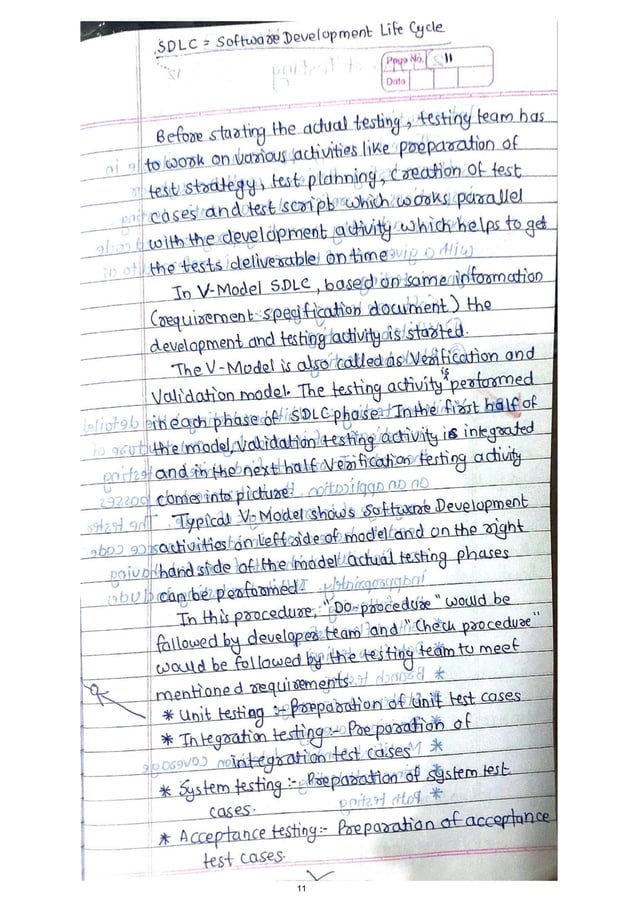 SDLC = Software Development Life Cycle
Page No. 11
Date
Before starting the actual testing, testing team has
to work on various activities like preparation of
test strategy, test planning, creation of test
cases and test script which works parallel
with the development activity which helps to get
the tests deliverable on time
In V-Model SDLC, based on same information
(requirement specification document) the
development and testing activity is started.
The V-Model is also called as Verification and
Validation model. The testing activity is performed
in each phase of SDLC phase. In the first half of
the model validation testing activity is integrated
and in the next half Verification testing activity
comes into picture.
Typical V-Model shows Software Development
activities on left side of model and on the right
hand side of the model actual testing phases
can be performed.
In this procedure, "DO-procedure" would be
followed by developer team and "Check procedure"
would be followed by the testing team to meet
mentioned requirements.
* Unit testing :- Preparation of Unit test cases
* Integration testing :- Preparation of
integration test cases
* System testing :- Preparation of System test
cases.
* Acceptance testing:- Preparation of acceptance
test cases.
11